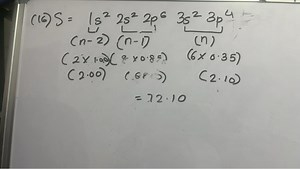 (16) S = 1s² 2s² 2p⁶ 3s² 3p⁴
(n-2) (n-1) (n)
(2×1.00) (8 × 0.85) (6 × 0.35)
(2.00) (2.10)
= 72.10